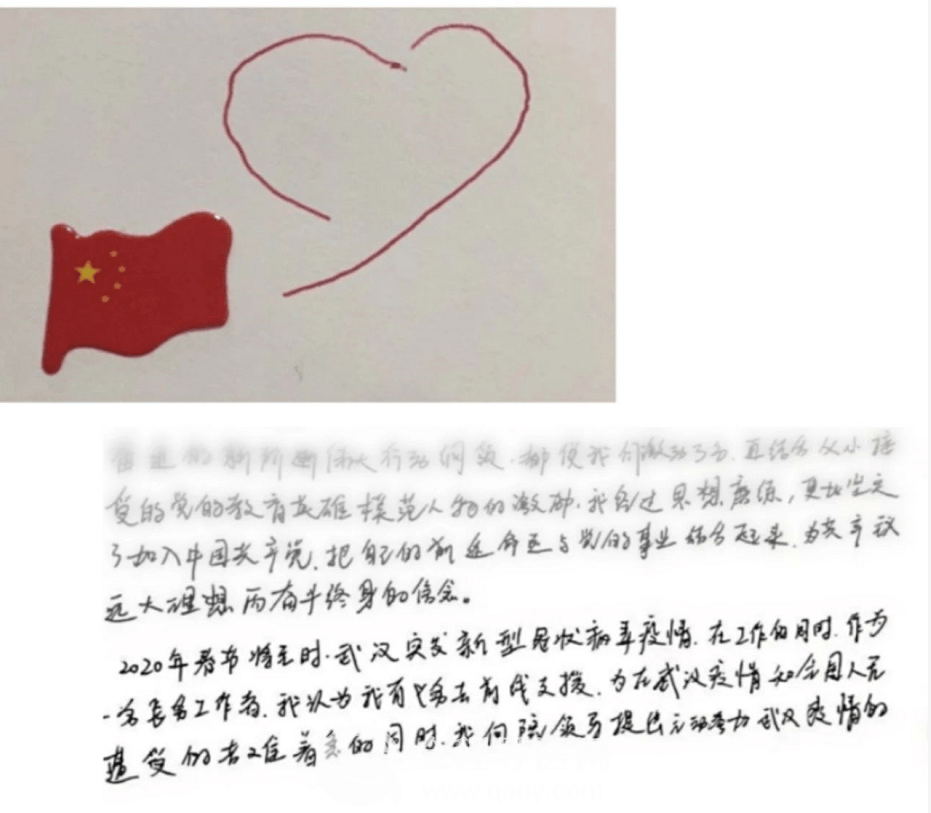 伟大行动 都使我们激动 再结合从小接
受的党的教育英雄模范人物的激励.我经过思想磨练,更加坚定
了加入中国共产党,把自己的前途命运与党的事业结合起来,为共产
远大理想而奋斗终身的信念。
2020年春节将至时.武汉突发新型冠状病毒疫情.在工作的同时.作为
一名医务工作者.我认为我有 去前线支援.为在武汉疫情和全国人民
遭受的苦难着急的同时.我向院领导提出主动奔赴武汉疫情的